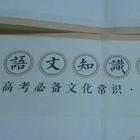 語文知識
高考必备文化常识·